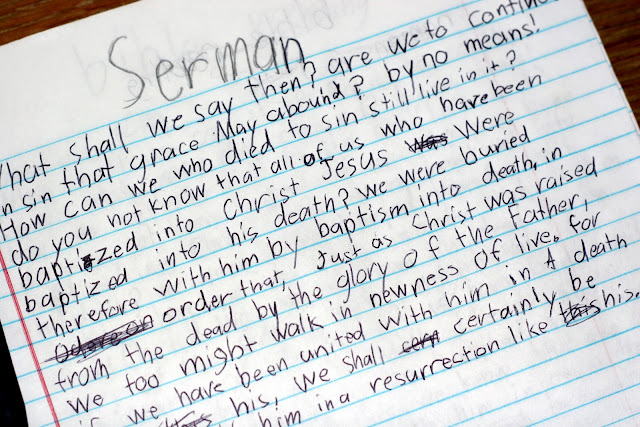 Serman
What shall we say then? are we to continue
in sin that grace May abound? by no means!
How can we who died to sin still live in it?
do you not know that all of us who have been
baptized into Christ Jesus were
baptized into his death? We were buried
therefore with him by baptism into death, in
order that, just as Christ was raised
from the dead by the glory of the Father,
we too might walk in newness of live. for
if we have been united with him in A death
his, we shall certainly be
him in a resurrection like his.